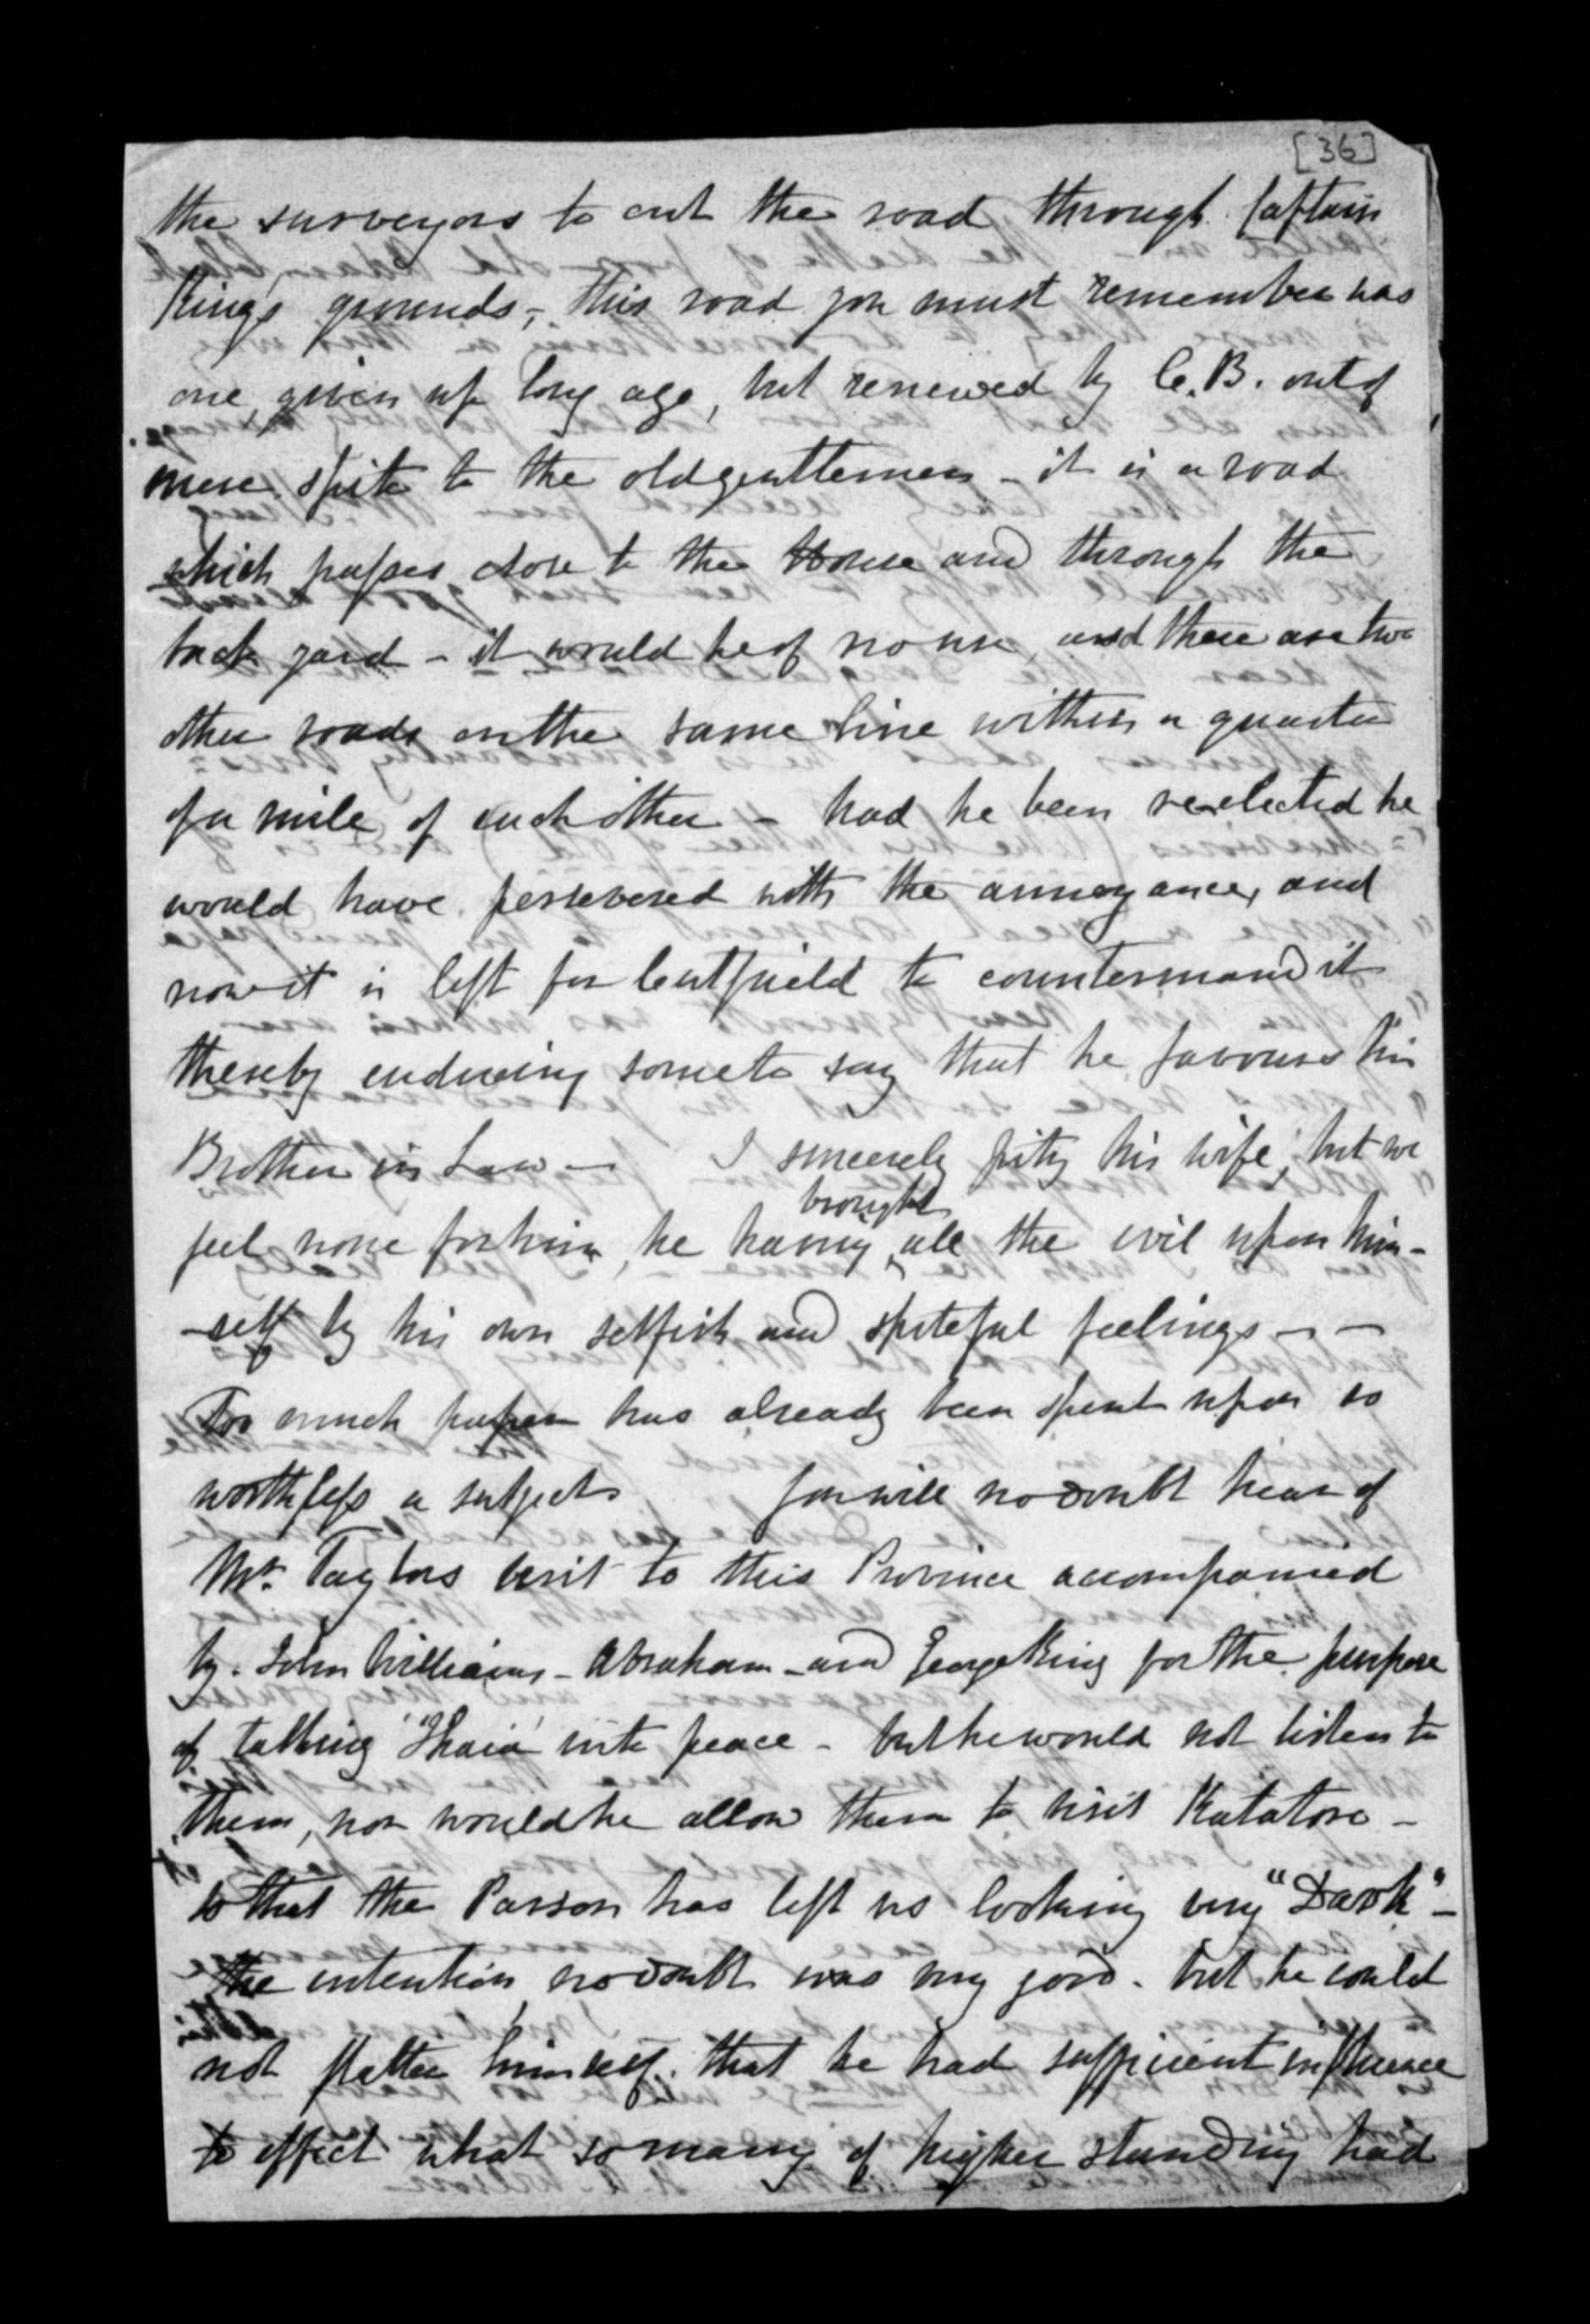 [36]
the surveyors to cut the road through Captain
King's grounds, - this road you must remember was
one given up long ago, but renewed by C.B. out of
mere spite to the old gentleman - it is a road
which passes close to the House and through the
back yard - it would be of no use, and there are two
other roads on the same line within a quarter
of a mile of each other - had he been reelected he
would have persevered with the annoyance, and
now it is left for Cutfield to countermand it
thereby inducing some to say that he favours his
Brother in Law - I sincerely pity his wife, but we
feel none for him, he having brought all the evil upon him-
-self by his own selfish and spiteful feelings - -
Too much paper has already been spent upon so
worthless a subject You will no doubt hear of
Mr. Taylors visit to this Province accompanied
by John Williams - Abraham - and George King for the purpose
of talking "Ihaia" into peace - but he would not listen to
them, nor would he allow them to visit Katatore -
so that the Parson has left us looking very "Dark" -
the intention no doubt was very good - but he could
not flatter himself that he had sufficient influence
to effect what so many of higher standing had